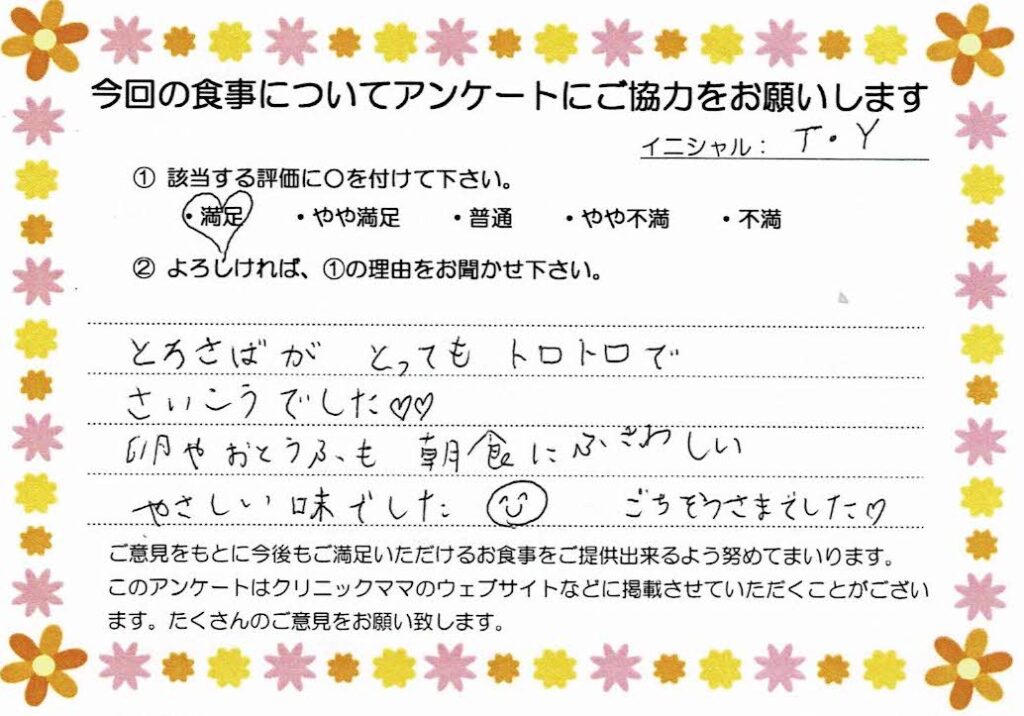 今回の食事についてアンケートにご協力をお願いします
イニシャル： T・Y
① 該当する評価に〇を付けて下さい。
・満足 ・やや満足 ・普通 ・やや不満 ・不満
② よろしければ、①の理由をお聞かせ下さい。
とろさばが とってもトロトロで
さいこうでした♡♡
卵やおとうふも 朝食にふさわしい
やさしい味でした ごちそうさまでした♡
ご意見をもとに今後もご満足いただけるお食事をご提供出来るよう努めてまいります。
このアンケートはクリニックママのウェブサイトなどに掲載させていただくことがござい
ます。たくさんのご意見をお願い致します。